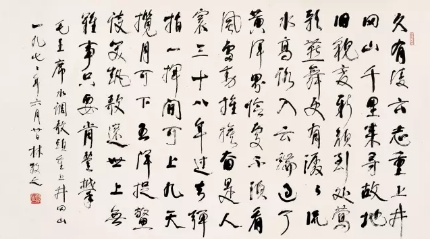 久有凌云志重上井
冈山千里来寻故地
旧貌变新颜到处莺
歌燕舞更有潺潺流
水高路入云端过了
黄洋界险处不须看
风雷动旌旗奋是人
寰三十八年过去弹
指一挥间可上九天
揽月可下五洋捉鳖
谈笑凯歌还世上无
难事只要肯登攀
毛主席水调歌头重上井冈山
一九七年六月林散之